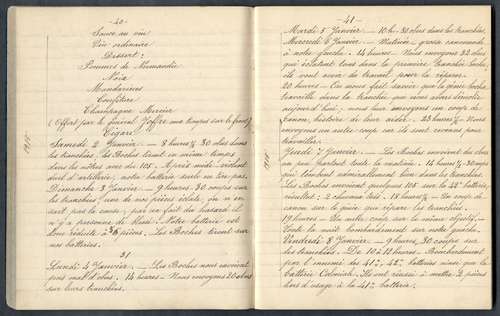 - 40 -
Sauce au vin
Vin ordinaire
Dessert :
Pommes de Normandie
Noix
Mandarines
Confiture
Champagne Mercier
(Offert par le général Joffre aux troupes sur le front)
Cigare
1915
Samedi 2 Janvier. _ 8 heures ½ 30 obus dans
les tranchées. Les Boches tirent en même temps
dans les nôtres avec du 105. Après midi. violent
duel d'artillerie, notre batterie seule en tire pas.
Dimanche 3 Janvier. _ 9 heures. 30 coups sur
les tranchées, une de nos pièces éclate, on n'en
sait pas la cause, par un fait du hasard il
n'y a personne de blessé. Notre batterie est
donc réduite à pièces. Les Boches tirent sur
nos batteries.
31
Lundi 4 Janvier. _ Les Boches nous envoient
pas mal d'obus. 14 heures - Nous envoyons 20 obus
sur leurs tranchées.
- 41 -
Mardi 5 Janvier _ 10 h. 30 obus dans les tranchées.
Mercredi 6 Janvier. _ Matinée, grosse canonnade
à notre gauche. 14 heures. Nous envoyons 32 obus
qui éclatent tous dans la première tranchée boche,
ils vont avoir du travail pour la réparer.
20 heures - On nous fait savoir que le génie boche
travaille dans la tranchée que nous avons démolie
aujourd'hui, nous leur envoyons un coup de
canon, histoire de leur aider. 23 heures ½ - Nous
envoyons un autre coup car ils sont revenus pour
travailler.
1915
Jeudi 7 Janvier. _ Les Boches envoient des obus
un peu partout toute la matinée. 14 heures ½ - 30 coups
qui tombent admirablement bien dans les tranchées.
Les Boches envoient quelques 105 sur la 42e batterie,
résultat : 2 chevaux tués. 18 heures ½ - Un coup de
canon sur le génie qui répare les tranchées.
19 heures - Un autre coup sur le même objectif. _
Toute la nuit bombardement sur notre gauche.
Vendredi 8 Janvier. _ 9 heures 30 coups sur
les tranchées. _ De 10 à 12 heures - Bombardement
par l'ennemi des 41e, 42e batteries ainsi que la
batterie Coloniale. Ils ont réussi à mettre 2 pièces
hors d'usage à la 41e batterie.